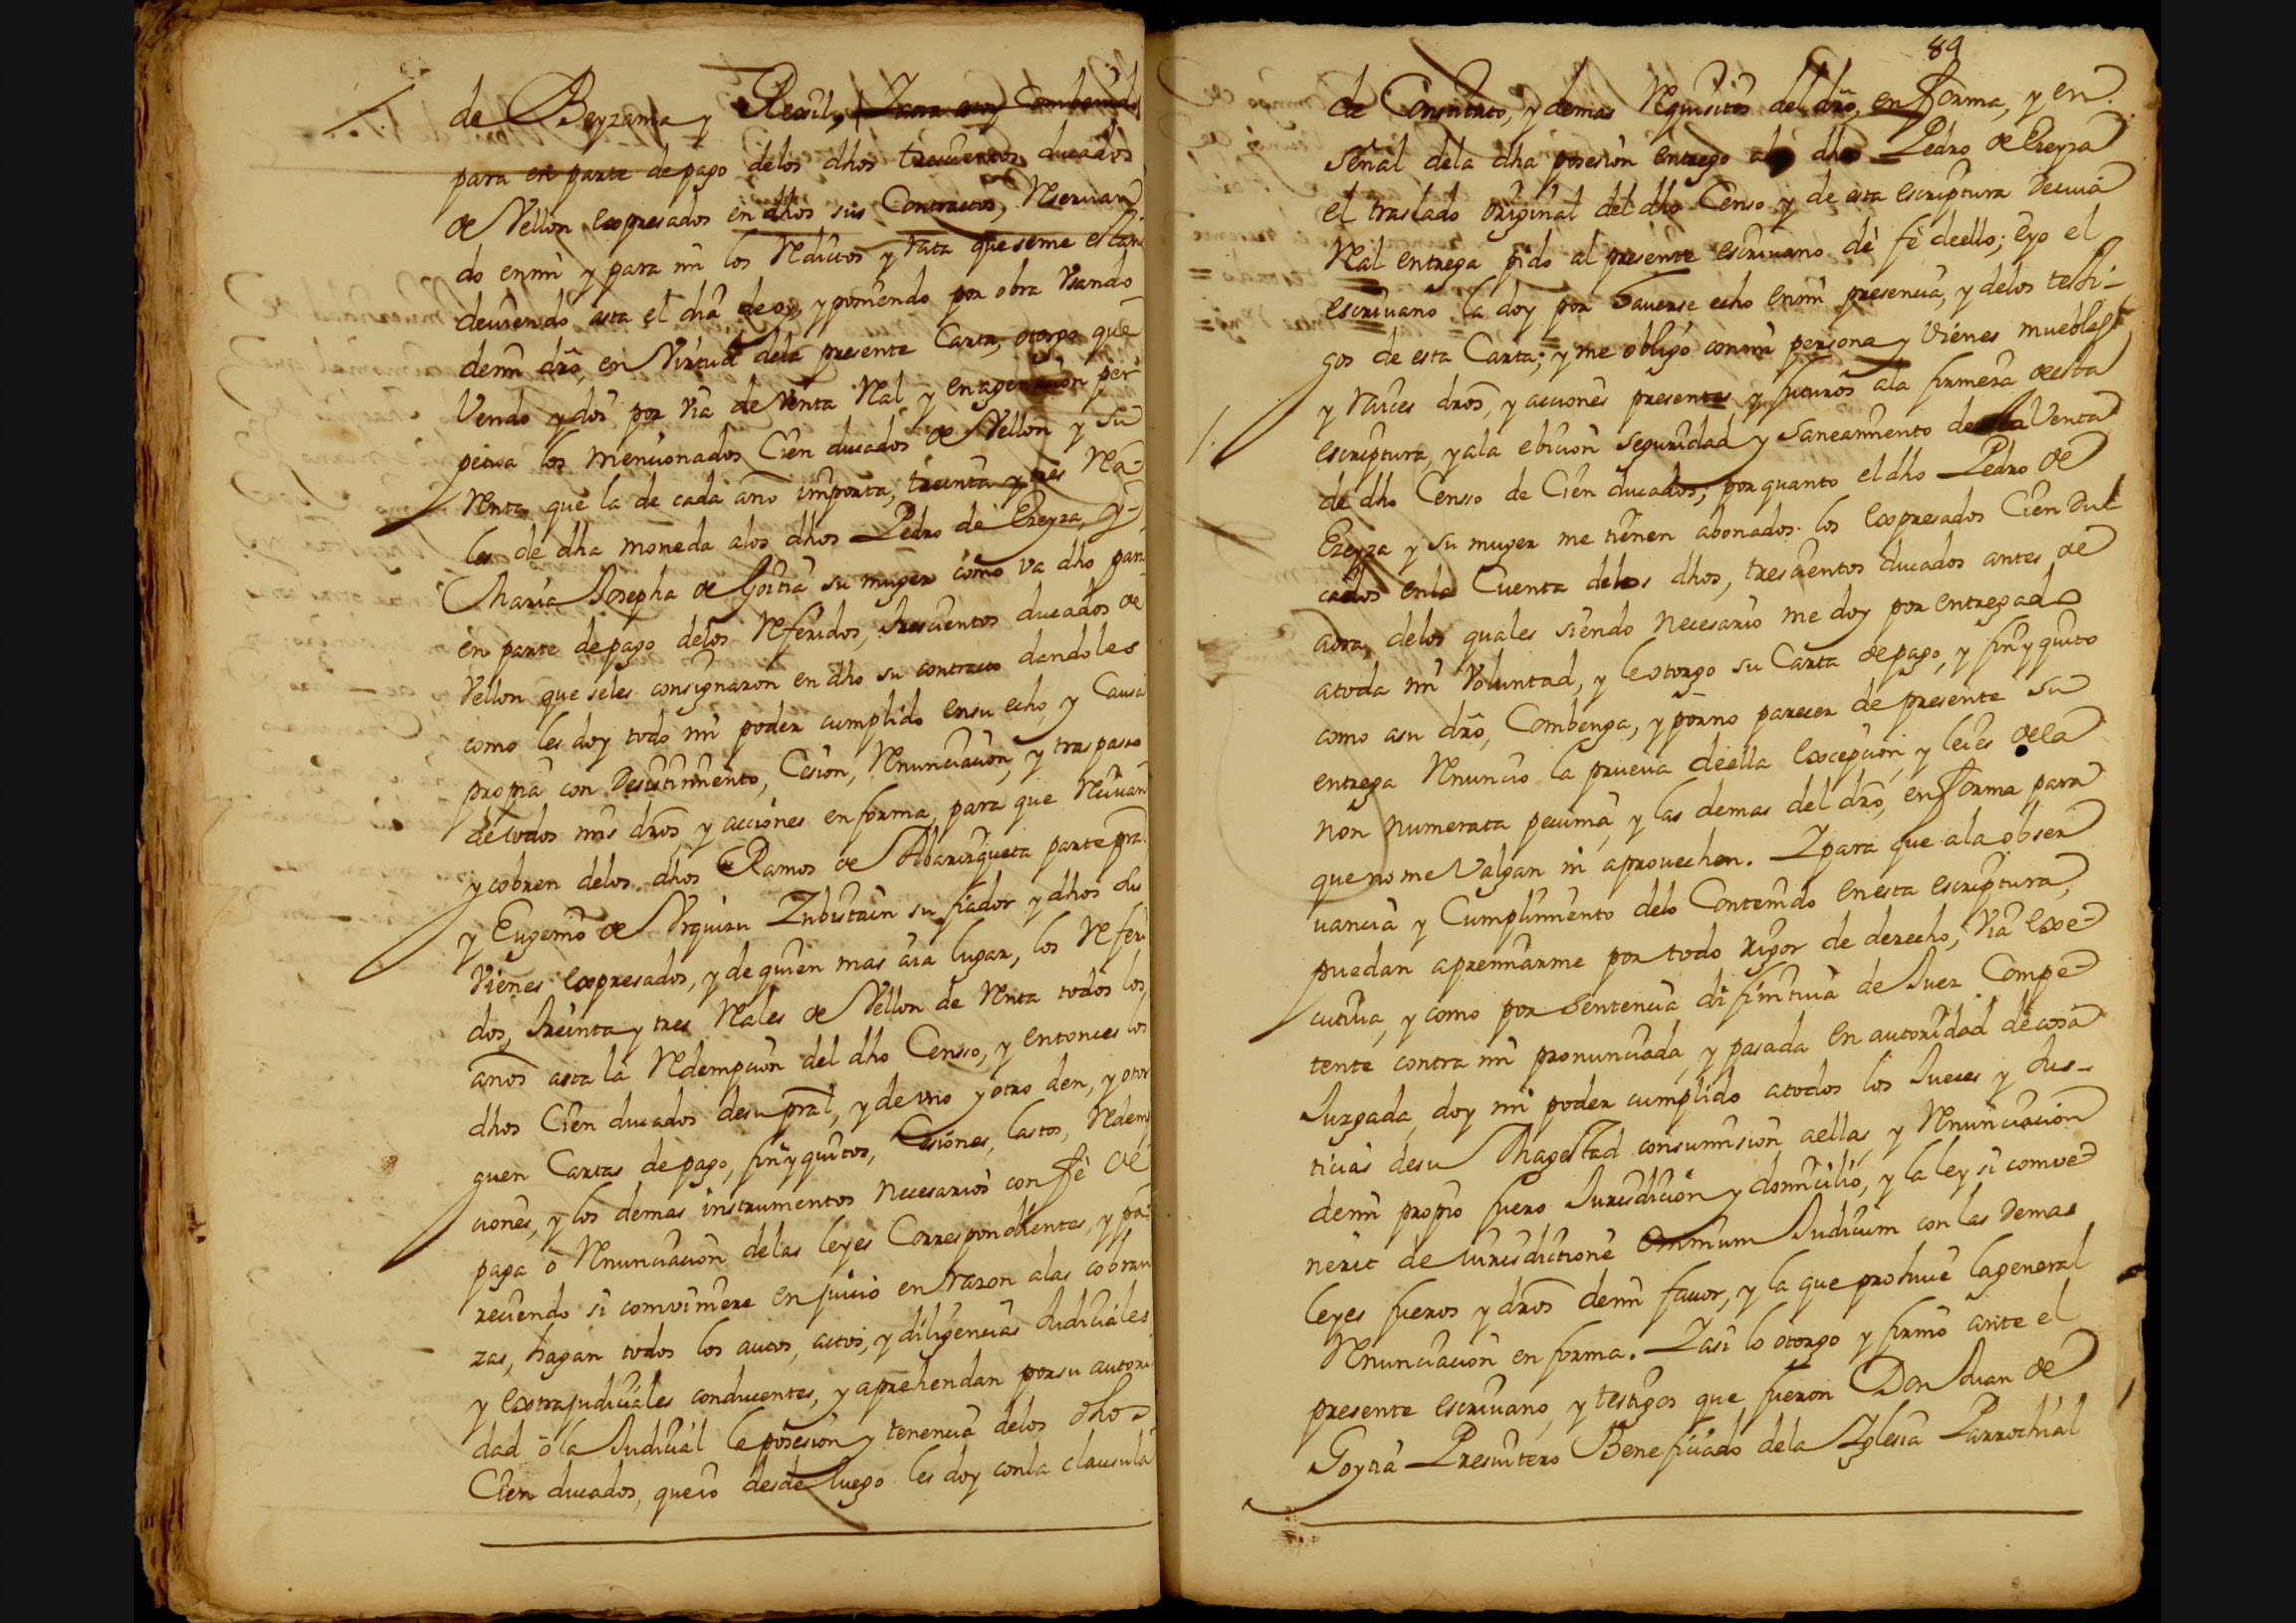 de Beyzama y Rexil, Zaora estoy Combenido
para en parte de pago delos dhos trescientos ducados
de Vellon expresados en dhos sus Contractos, Reseruan
do enmi y para mi los Reditos y rata que seme estan
deuiendo asta el dia de oy, y poniendo por obra Usando
demi dro, en Virtud dela presente Carta, otorgo que
Vendo y doi por via de Venta Real y enagenacion per
petua los mencionados Cien ducados de Vellon y su
Renta que la de cada año importa, treinta y tres Rea-
les de dha moneda alos dhos Pedro de Ezeyza, y-
Maria Josepha de Goitia su muger como va dho para
en parte de pago delos Referidos, trescientos ducados de
Vellon que seles consignaron en dho su contracto dandoles
como les doy todo mi poder cumplido ensu echo, y Causa
propia con Desistimiento, Cesion, Renunciacion, y traspasso
de todos mis dros y acciones en forma, para que Reciuan
y cobren delos dhos Ramos de Abarizqueta parte pral
y Eugenio de Vrquizu Zubistain su fiador y dhos sus
Vienes expresados, y de quien mas aia lugar, los Referi
dos, treinta y tres Reales de Vellon de Renta todos los
años asta la Redempcion del dho Censso, y entonces los
dhos Cien ducados desu pral, y de vno y otro den, y otor
guen Cartas de pago, fin y quitos, Cesiones, lastos, Redemp
ciones, y los demas instrumentos necesarios con fè de
paga ò Renunciacion delas leyes Correspondientes, y pa-
reciendo si comviniere en juicio en razon alas cobran
zas, hagan todos los autos, actos, y diligencias Judiciales,
y extrajudiciales conducentes, y aprehendan porsu autori
dad ò la Judicial la posesion y tenencia delos dhos
Cien ducados, que io desde luego les doy conla clausula
89
de Constituto, y demas Requisitos del dro, en forma, y en
señal dela dha posesion entrego al dho Pedro de Ezeyza
el traslado original del dho Censo y de esta escriptura de cuia
Real entrega pido al presente escriuano dè fè deello; e yo el
escriuano la doy por hauerse echo enmi presencia, y delos testi-
gos de esta Carta; y me obligo conmi persona y Vienes muebles
y raices dros, y acciones presentes y futuros ala firmeza deesta
escriptura, y ala ebicion seguridad y saneamiento de la Venta
de dho Censso de Cien ducados; por quanto el dho Pedro de
Ezeyza y su muger me tienen abonados los expresados Cien Du
cados enla Cuenta delos dhos, trescientos ducados antes de
aora, delos quales siendo necesario me doy por entregado
atoda mi Voluntad, y le otorgo su Carta de pago, y fin y quito
como asu dro, Combenga, y por no parecer de presente su
entrega Renuncio la prueua deella excepcion, y leies dela
non numerata pecunia, y las demas del dro, en forma para
que no me Valgan ni aprouechen. Y para que ala obser
uancia y Cumplimiento delo Contenido enesta escriptura,
puedan apremiarme por todo rigor de derecho, Via exe-
cutiua, y como por sentencia difinitiua de Juez Compe-
tente contra mi pronunciada, y pasada en autoridad de cosa
Juzgada, doy mi poder cumplido atodos los Jueces y Jus-
ticias desu Magestad consumision aellas, y Renunciacion
demi propio fuero Jurisdicion y domicilio, y la ley si comve-
nerit de iurisdictione Omnium Judicum con las demas
leyes fueros y dros demi fauor, y la que prohiue la general
Renunciacion en forma. Y asi lo otorgo y firmo ante el
presente escriuano, y testigos que fueron Don Juan de
Goytia Presuitero Beneficiado dela Yglesia Parrochial